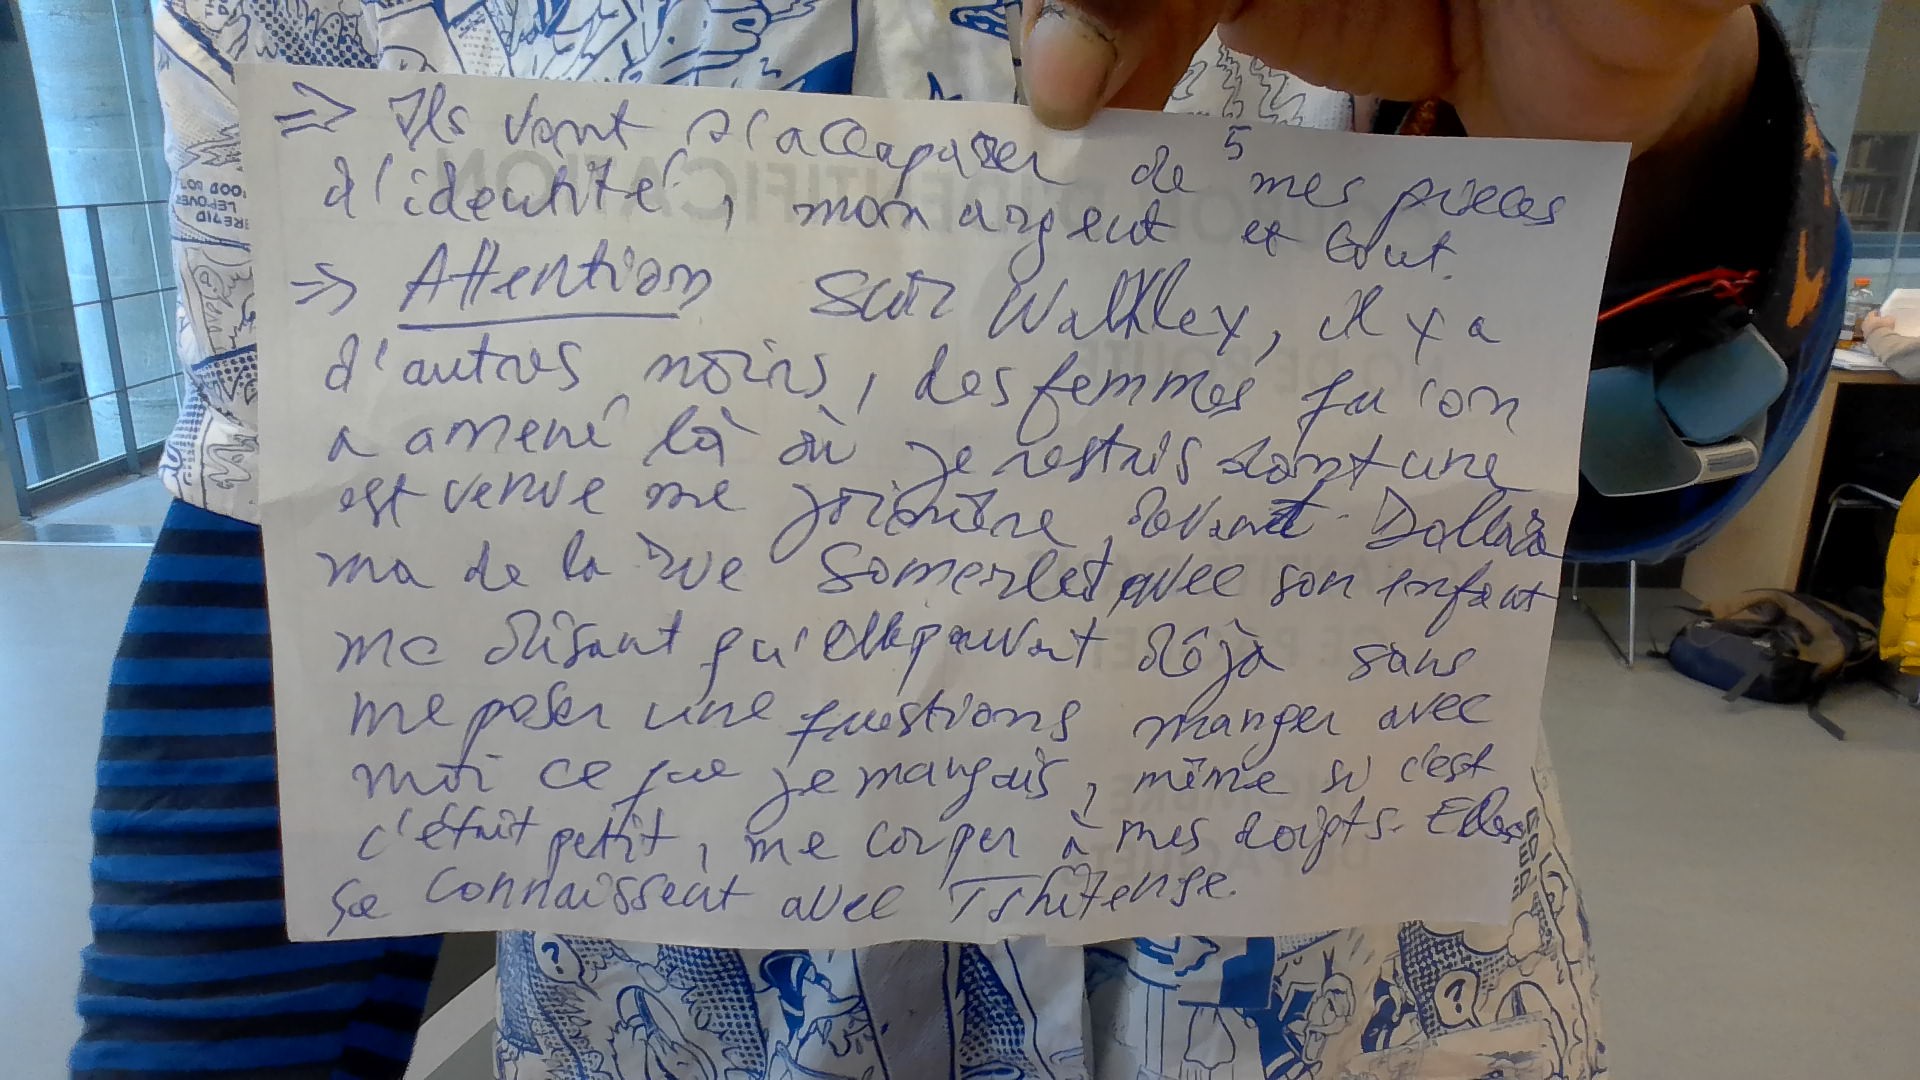 ⇒ Ils vont s'accaparer de 5 mes pièces
d'identité, mon argent et tout.
⇒ Attention sur Walkley, il y a
d'autres noirs, des femmes qu'on
a amené là où je restais dont une
est venue me joindre devant Dollara
ma de la rue Somerset avec son enfant
me disant qu'elle pouvait déjà sans
me poser une questions manger avec
moi ce que je mangais, même si c'est
c'était petit, me couper à mes doigts. Elles
se connaissent avec Tshitenge.